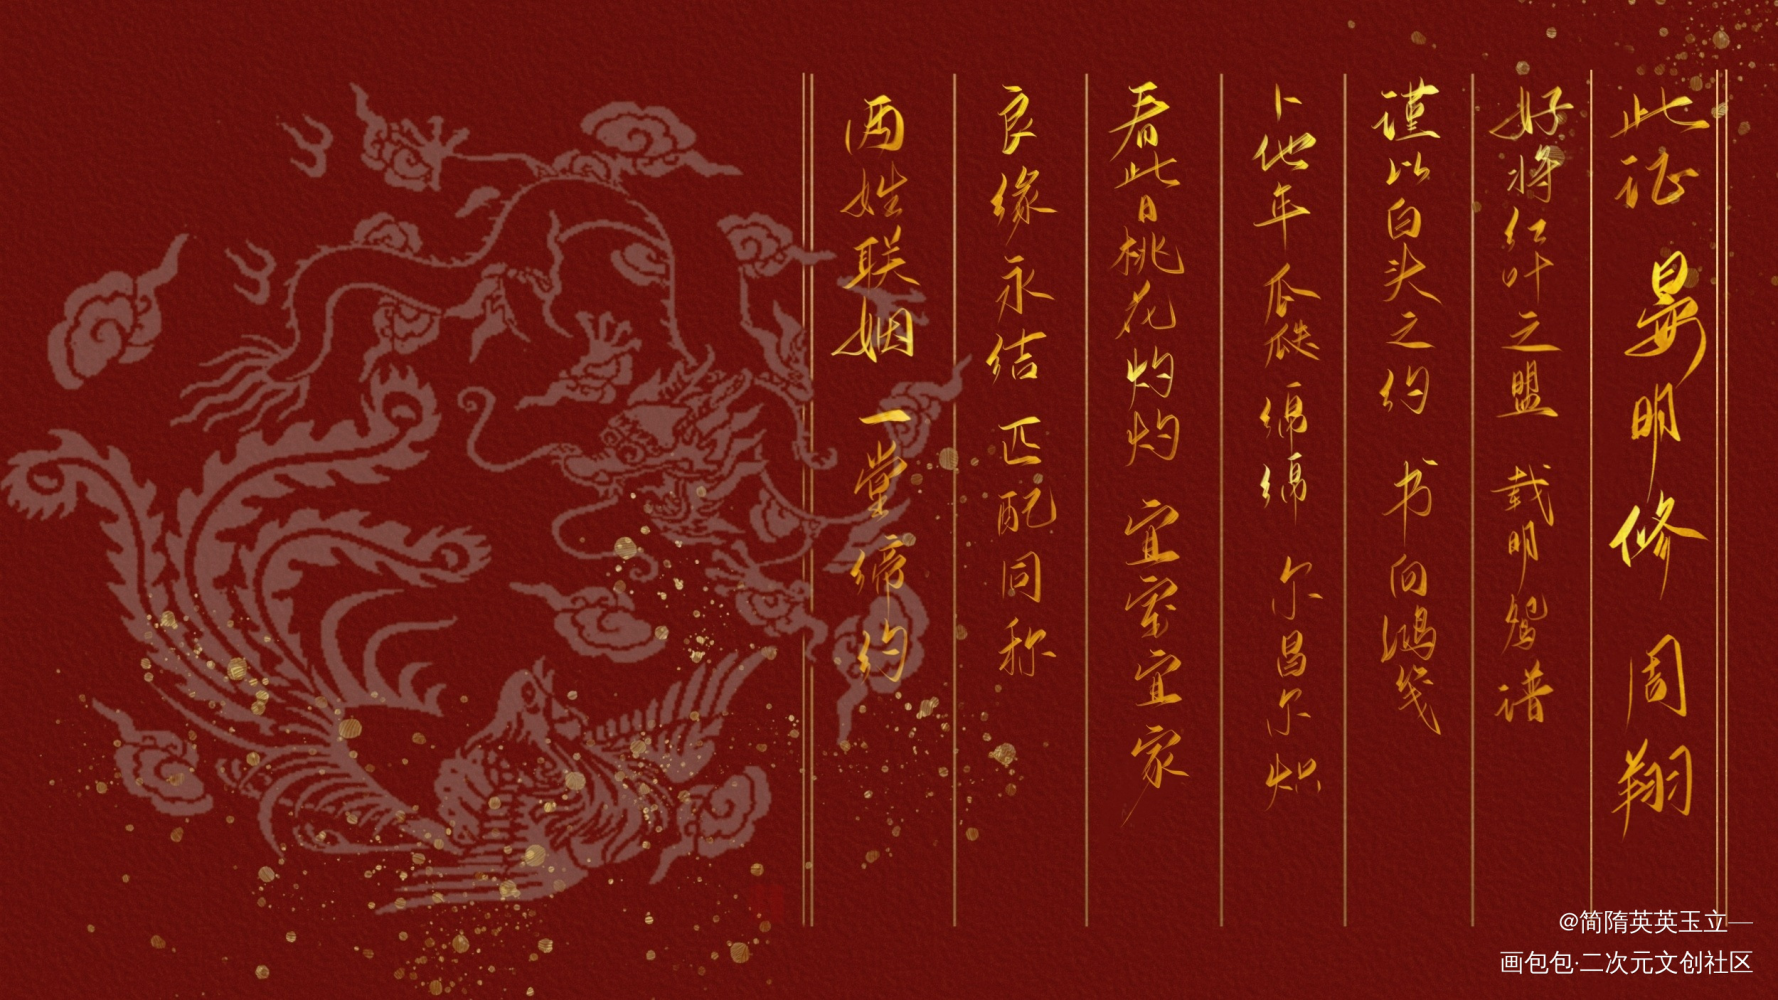 两姓联姻 一堂缔约
良缘永结 匹配同称
看此日桃花灼灼 宜室宜家
卜他年瓜瓞绵绵 尔昌尔炽
谨以白头之约 书向鸿笺
好将红叶之盟 载明鸳谱
此证 晏明修 周翔
@简隋英英玉立—
画包包·二次元文创社区